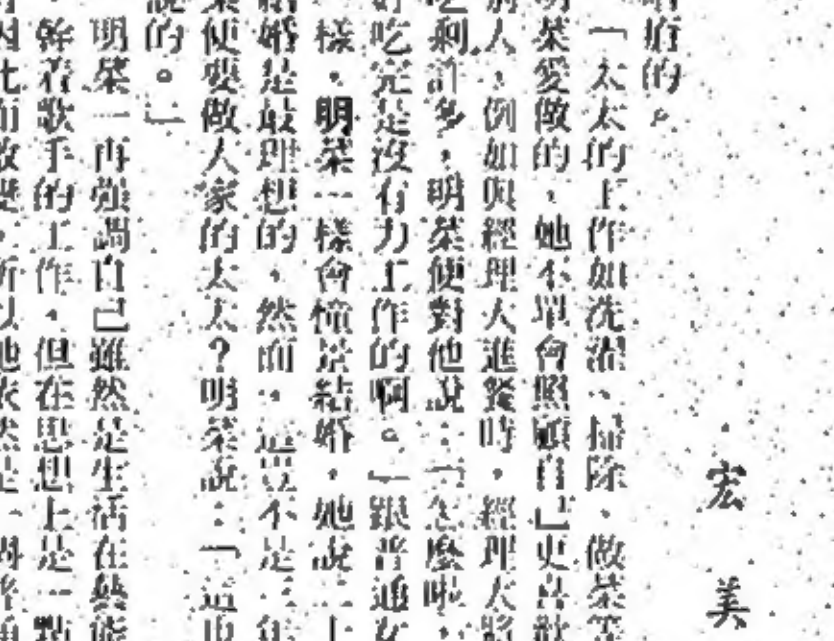 宏美
的。
「太太的工作如洗濯、掃除、做菜等
明菜愛做的，她不單會照顧自己更喜歡
別人，例如與經理人進餐時，經理太
吃剩許多，明菜便對他說：「怎麼啦，
好吃完是沒有力工作的啊。」跟普通女
樣，明菜一樣會憧景結婚，她說二十
結婚是最理想的，然而，這豈不是三年
菜便要做人家的太太？明菜說：「這也
說的。」
明菜一再強調自己雖然是生活在藝能
幹着歌手的工作，但在思想上是一點
因此而改變，所以她依然是一